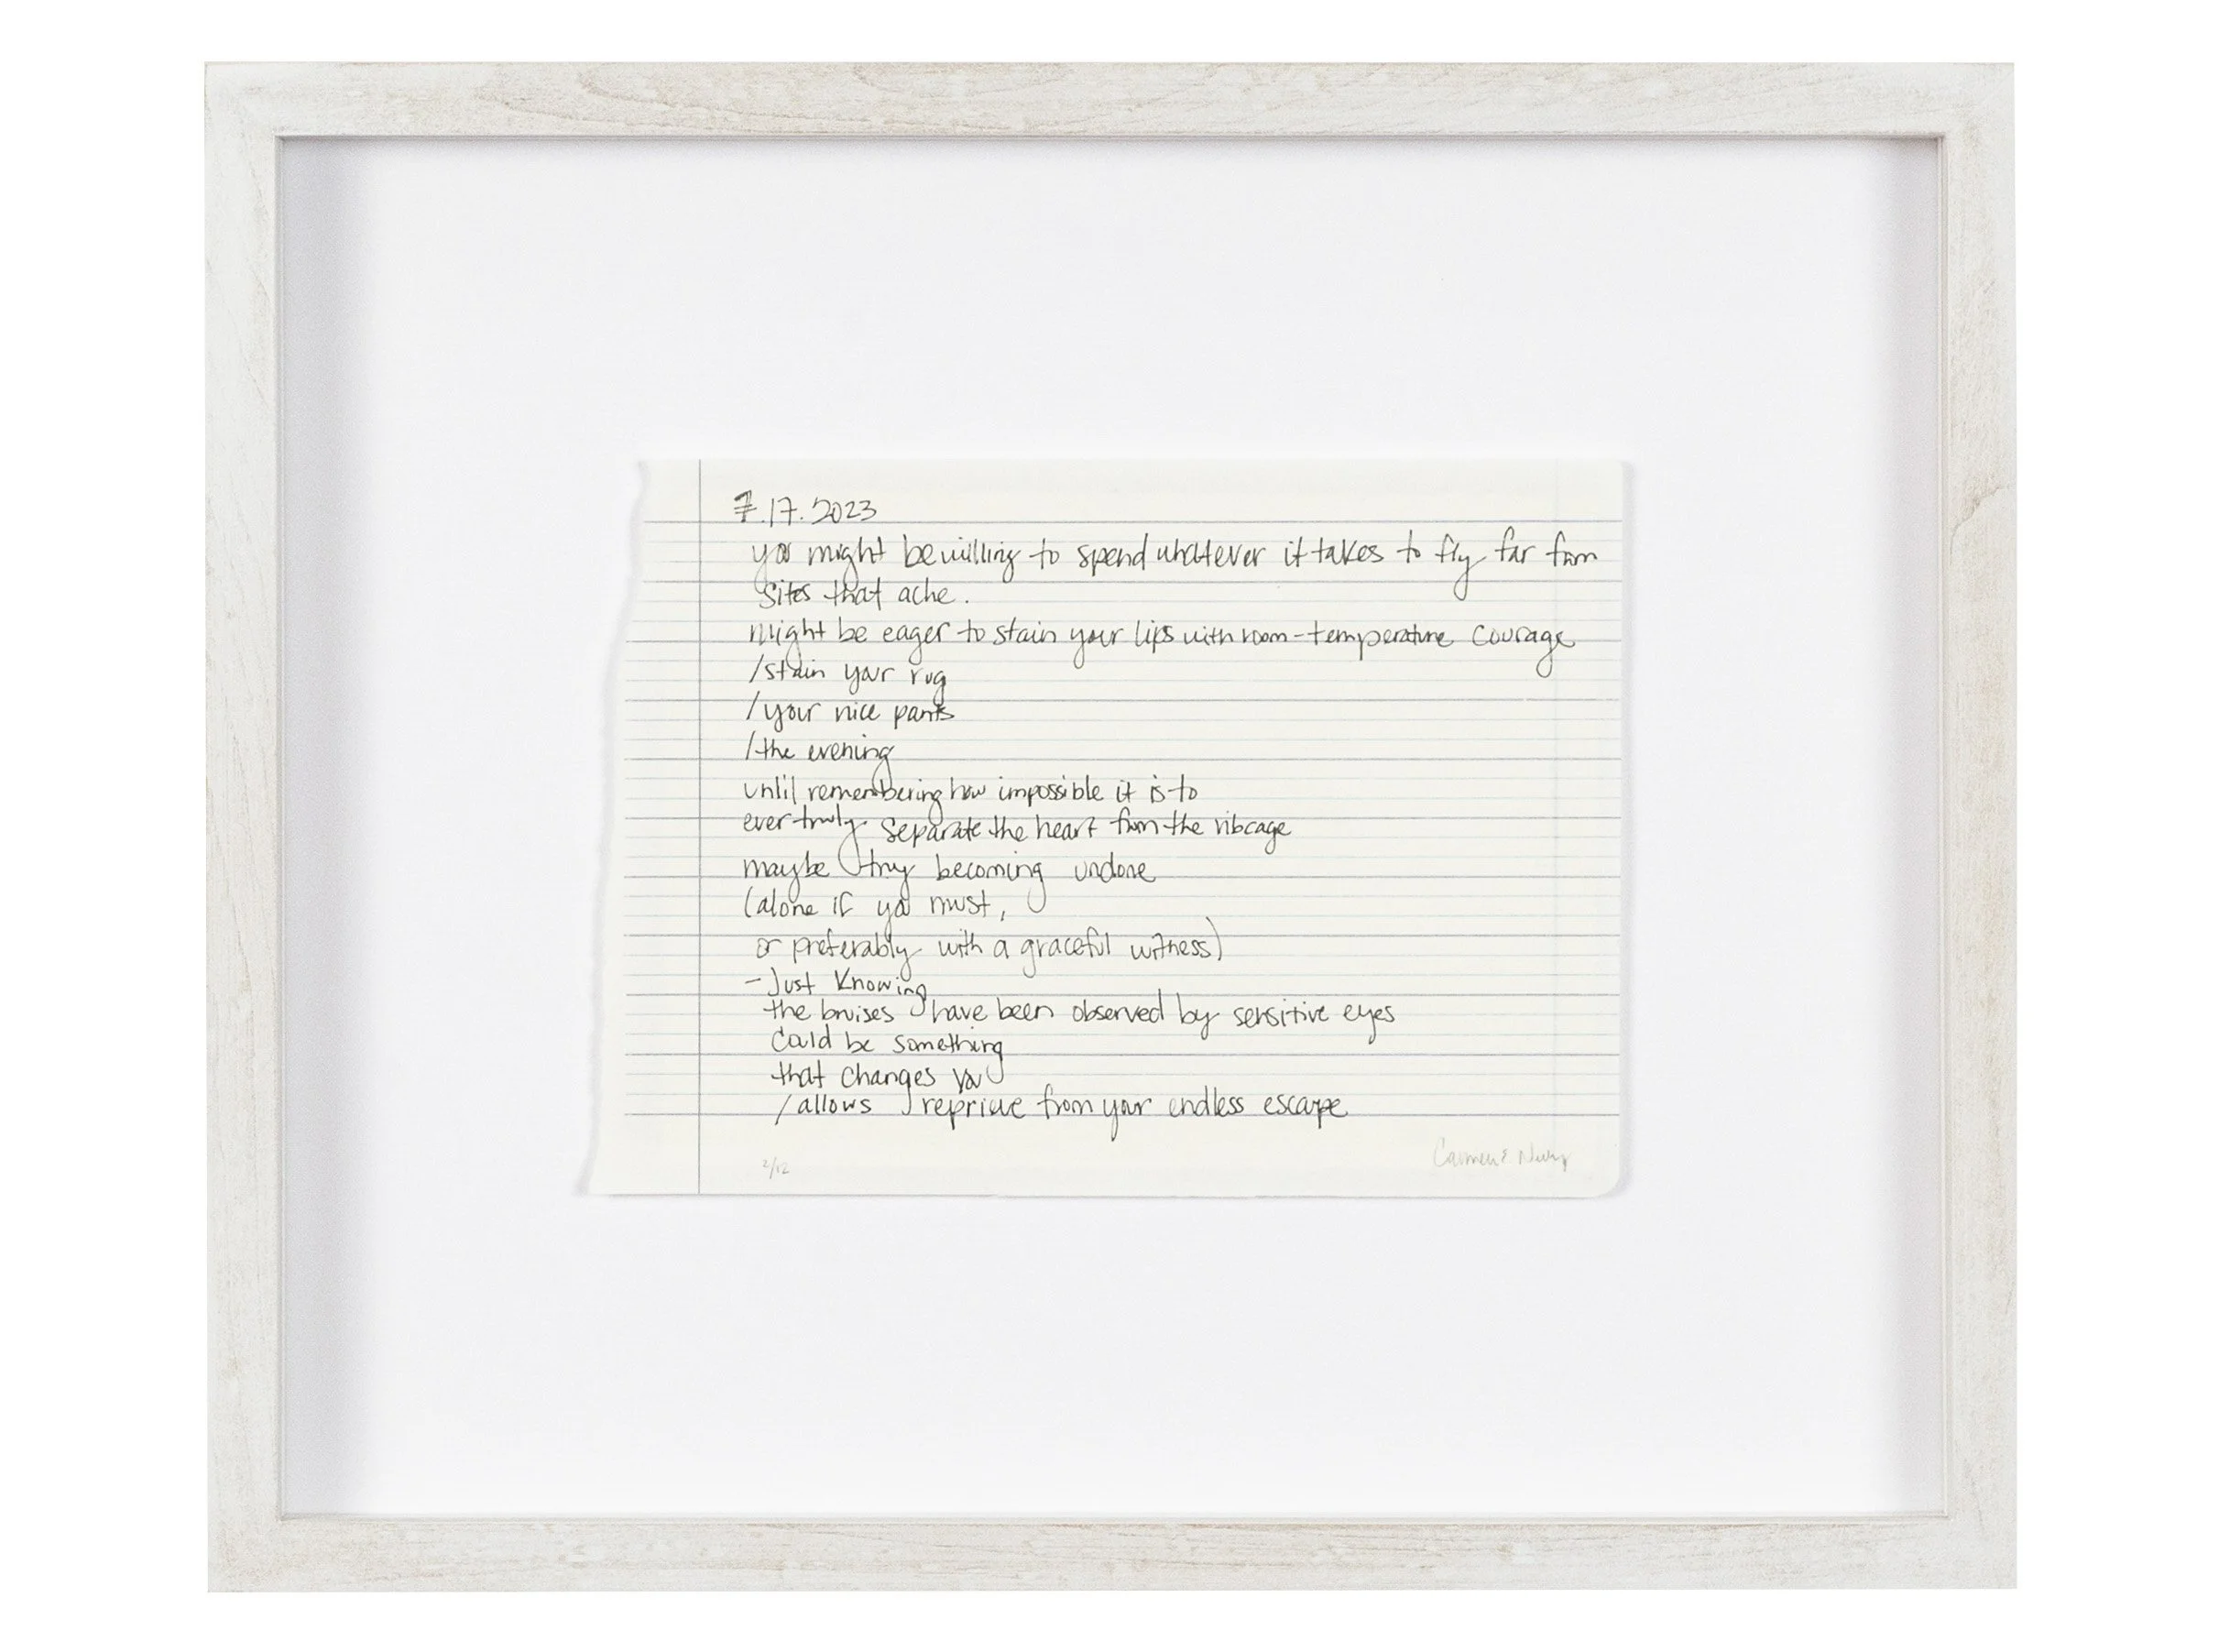 7.17.2023
you might be willing to spend whatever it takes to fly far from
sites that ache.
might be eager to stain your lips with room-temperature courage
/stain your rug
/your nice pants
/the evening
until remembering how impossible it is to
ever truly separate the heart from the ribcage
maybe try becoming undone
(alone if you must,
or preferably with a graceful witness)
- Just knowing
the bruises have been observed by sensitive eyes
could be something
that changes you
/allows reprieve from your endless escape
2/12
Carmen E